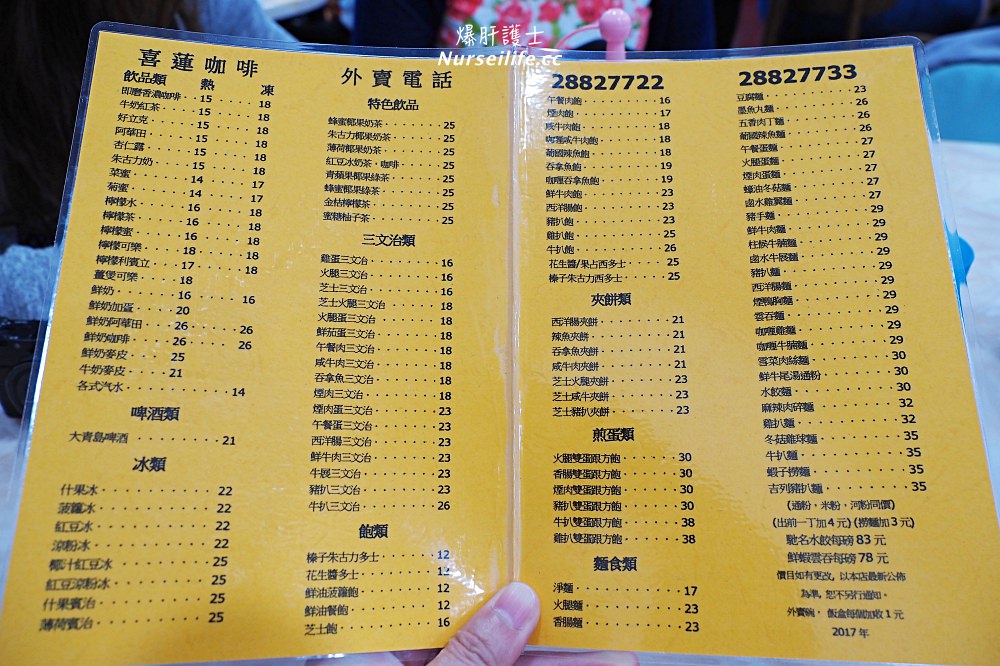 爆肝護士
Nurseilife.cc
喜蓮咖啡
飲品類 熱 凍
即磨香濃咖啡 15 18
牛奶紅茶 15 18
好立克 15 18
阿華田 15 18
杏仁露 15 18
朱古力奶 15 18
菜蜜 14 17
菊蜜 14 17
檸檬水 16 18
檸檬茶 16 18
檸檬蜜 16 18
檸檬可樂 18 18
檸檬利賓立 17 18
薑煲可樂 18
鮮奶 16 16
鮮奶加蛋 20
鮮奶阿華田 26 26
鮮奶咖啡 26 26
鮮奶麥皮 25
牛奶麥皮 21
各式汽水 14
啤酒類
大青島啤酒 21
冰類
什果冰 22
菠蘿冰 22
紅豆冰 22
涼粉冰 22
椰汁紅豆冰 25
紅豆涼粉冰 25
什果賓治 25
薄荷賓治 25
外賣電話
特色飲品
蜂蜜椰果奶茶 25
朱古力椰果奶茶 25
薄荷椰果奶茶 25
紅豆冰奶茶、咖啡 25
青蘋果椰果綠茶 25
蜂蜜椰果綠茶 25
金桔檸檬茶 25
蜜糖柚子茶 25
三文治類
雞蛋三文治 16
火腿三文治 16
芝士三文治 16
芝士火腿三文治 18
火腿蛋三文治 18
鮮茄蛋三文治 18
午餐肉三文治 18
咸牛肉三文治 18
吞拿魚三文治 18
煙肉三文治 18
煙肉蛋三文治 23
午餐蛋三文治 23
西洋腸三文治 23
鮮牛肉三文治 23
牛展三文治 23
豬扒三文治 23
牛扒三文治 26
飽類
榛子朱古力多士 12
花生醬多士 12
鮮油菠蘿飽 12
鮮油餐飽 12
芝士飽 16
28827722
午餐肉飽 16
煙肉飽 17
咸牛肉飽 18
咖喱咸牛肉飽 18
葡國辣魚飽 18
吞拿魚飽 19
咖喱吞拿魚飽 19
鮮牛肉飽 23
西洋腸飽 23
豬扒飽 23
雞扒飽 25
牛扒飽 26
花生醬/果占西多士 25
榛子朱古力西多士 25
夾餅類
西洋腸夾餅 21
辣魚夾餅 21
吞拿魚夾餅 21
咸牛肉夾餅 21
芝士火腿夾餅 23
芝士咸牛夾餅 23
芝士豬扒夾餅 23
煎蛋類
火腿雙蛋跟方飽 30
香腸雙蛋跟方飽 30
煙肉雙蛋跟方飽 30
豬扒雙蛋跟方飽 30
牛扒雙蛋跟方飽 38
雞扒雙蛋跟方飽 38
麵食類
淨麵 17
火腿麵 23
香腸麵 23
28827733
豆腐麵 23
墨魚丸麵 26
五香肉丁麵 26
葡國辣魚麵 26
午餐蛋麵 27
火腿蛋麵 27
煙肉蛋麵 27
蠔油冬菇麵 27
鹵水雞翼麵 27
豬手麵 29
鮮牛肉麵 29
柱候牛腩麵 29
鹵水牛展麵 29
豬扒麵 29
西洋腸麵 29
煙鴨胸麵 29
雲吞麵 29
咖喱雞麵 29
咖喱牛腩麵 29
雪菜肉絲麵 30
鮮牛尾湯通粉 30
水餃麵 30
麻辣肉碎麵 32
雞扒麵 32
冬菇雞球麵 35
牛扒麵 35
蝦子撈麵 35
吉列豬扒麵 35
(通粉、米粉、河粉同價)
(出前一丁加4元) (撈麵加3元)
馳名水餃每磅83元
鮮蝦雲吞每磅78元
價目如有更改, 以本店最新公佈
為準, 恕不另行通知。
外賣碗、飯盒每個加收1元
2017年